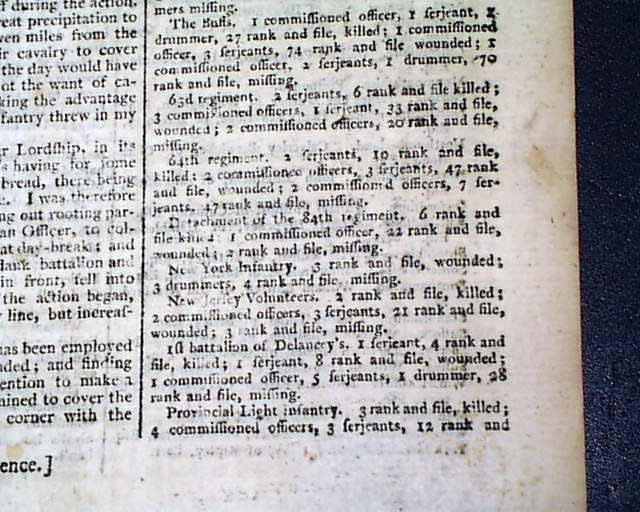 during the action.
eat precipitation to
ven miles from the
ir cavalry to cover
the day would have
ot the want of ca-
king the advantage
fantry threw in my
r Lordship, in its
s having for some
bread, there being
e. I was therefore
ng out rooting par-
an Officer, to col-
at day-break; and
lank battalion and
in front, fell into
the action began,
line, but increaf-
has been employed
ded; and finding
ention to make a
ined to cover the
corner with the
ence.]
mers miſſing.
The Buffs, 1 commiſſioned officer, 1 ſerjeant, 1
drummer, 27 rank and file, killed; 1 commiſſioned
officer, 3 ſerjeants, 74 rank and file wounded; 1
commiſſioned officer, 2 ſerjeants, 1 drummer, 70
rank and file, miſſing.
63d regiment. 2 ſerjeants, 6 rank and file killed;
3 commiſſioned officers, 1 ſerjeant, 33 rank and file,
wounded; 2 commiſſioned officers, 20 rank and file,
miſſing.
64th regiment. 2 ſerjeants, 10 rank and file,
killed; 2 commiſſioned officers, 3 ſerjeants, 47 rank
and file, wounded; 2 commiſſioned officers, 7 ſer-
jeants, 47 rank and file, miſſing.
Detachment of the 84th regiment. 6 rank and
file killed; 1 commiſſioned officer, 22 rank and file,
wounded; 2 rank and file, miſſing.
New York Infantry. 3 rank and file, wounded;
3 drummers, 4 rank and file, miſſing.
New Jerſey Volunteers. 2 rank and file, killed;
2 commiſſioned officers, 3 ſerjeants, 21 rank and file,
wounded; 3 rank and file, miſſing.
1ſt battalion of Delancey's. 1 ſerjeant, 4 rank and
file, killed; 1 ſerjeant, 8 rank and file, wounded;
1 commiſſioned officer, 5 ſerjeants, 1 drummer, 28
rank and file, miſſing.
Provincial Light infantry. 3 rank and file, killed;
4 commiſſioned officers, 3 ſerjeants, 12 rank and